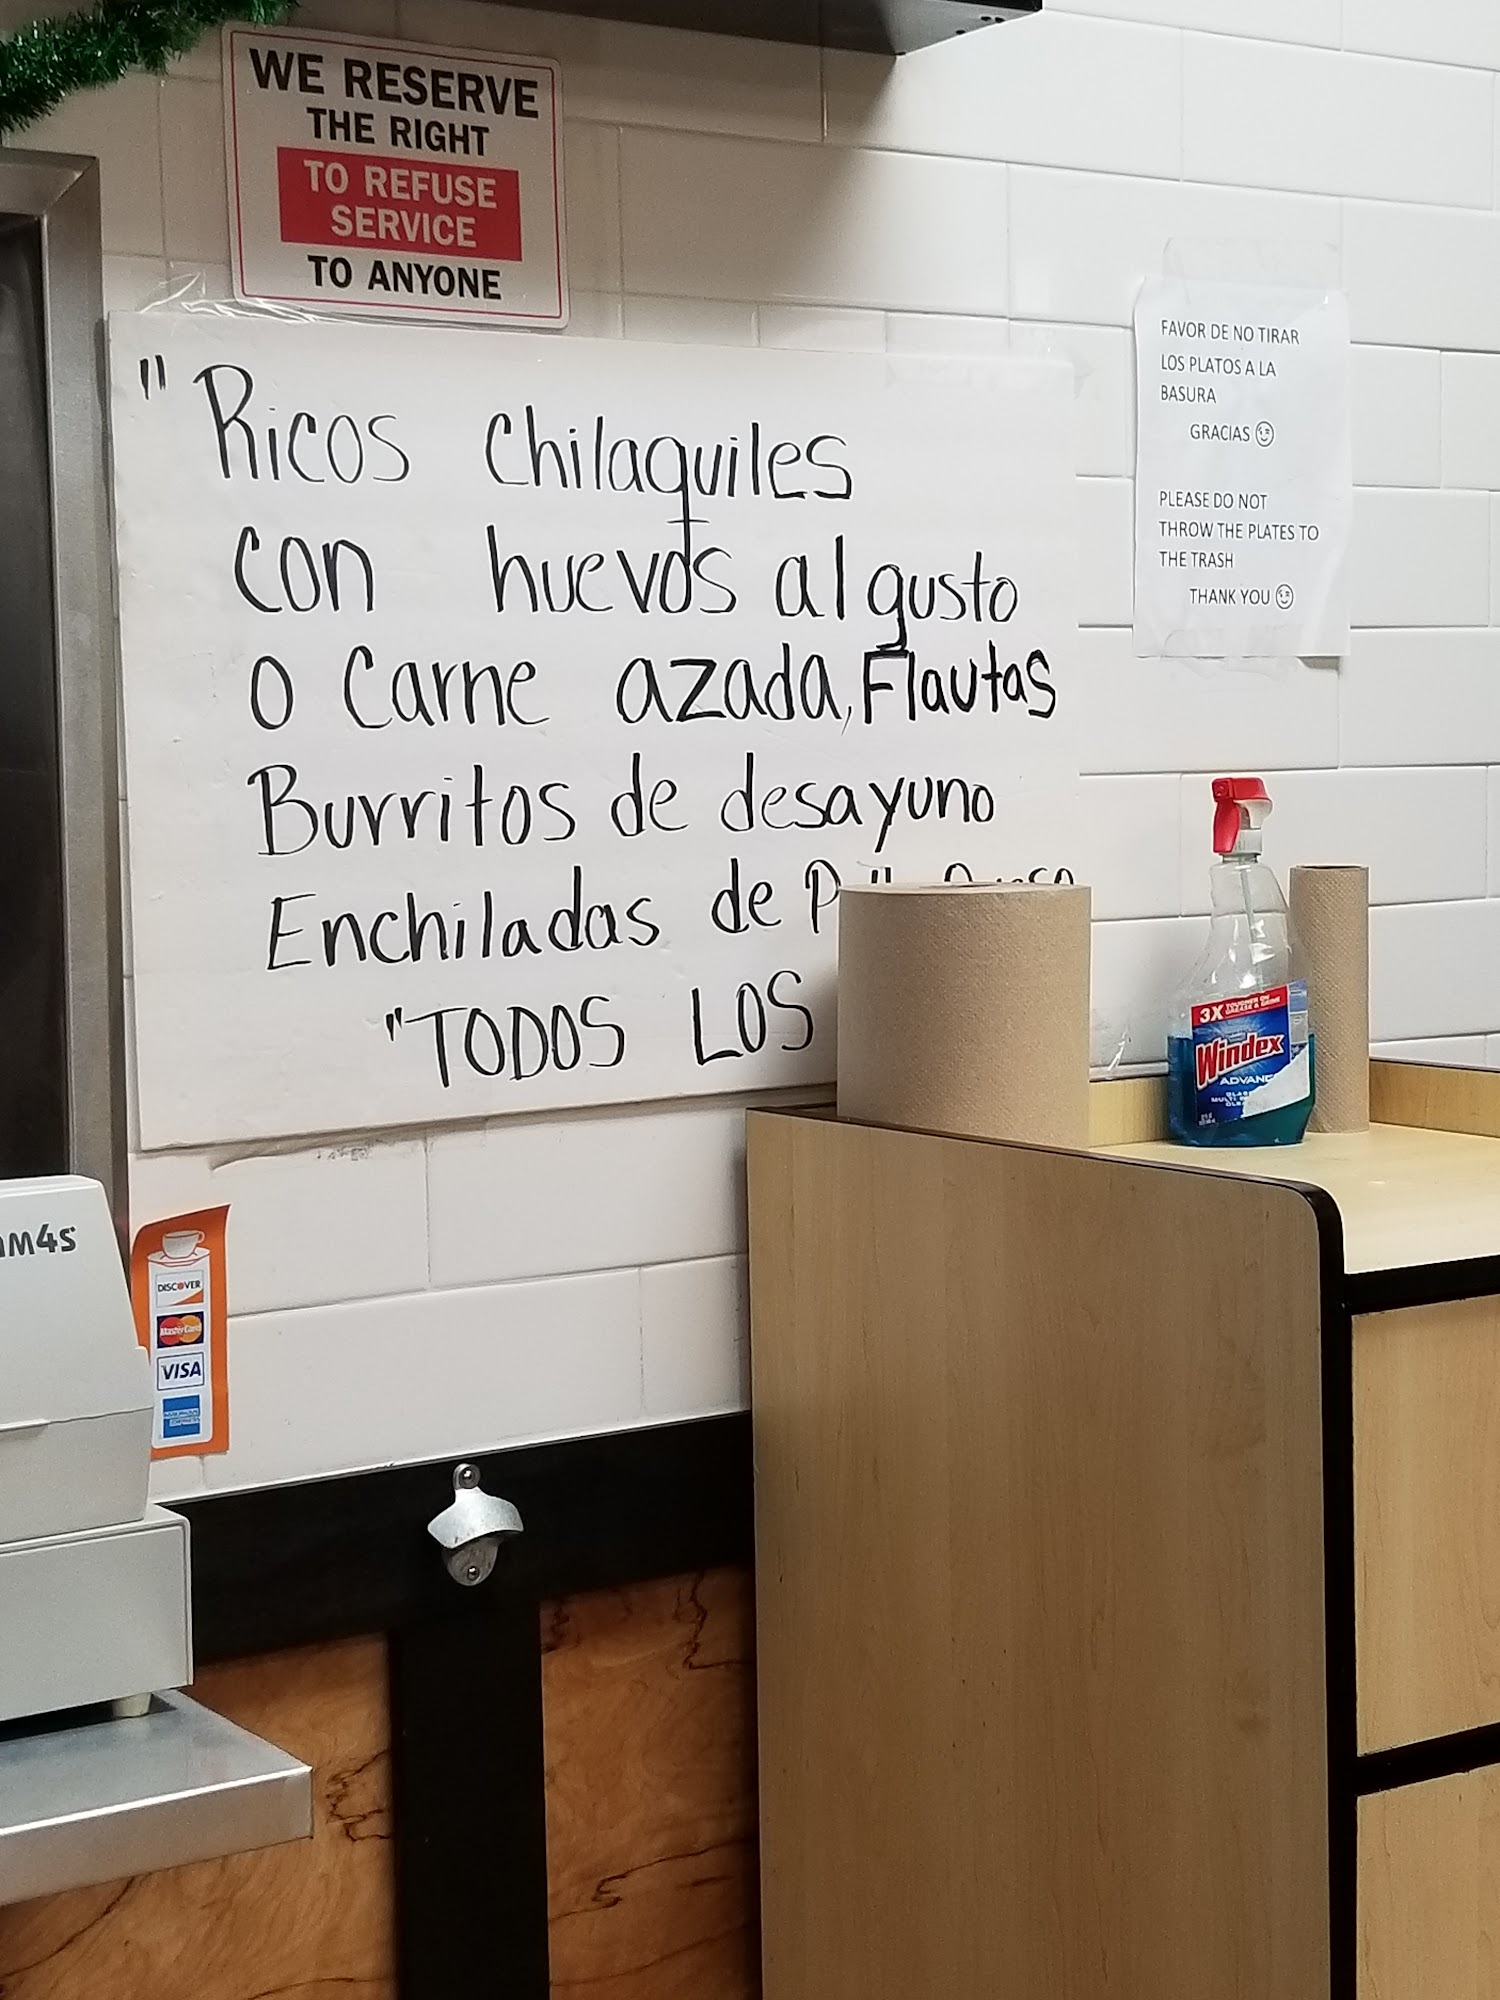 WE RESERVE
THE RIGHT
TO REFUSE
SERVICE
TO ANYONE
"Ricos Chilaquiles
con huevos al gusto
o Carne azada, Flautas
Burritos de desayuno
Enchiladas de
"TODOS LOS
FAVOR DE NO TIRAR
LOS PLATOS A LA
BASURA
GRACIAS
PLEASE DO NOT
THROW THE PLATES TO
THE TRASH
THANK YOU
3X
Windex
DISCOVER
MasterCard
VISA